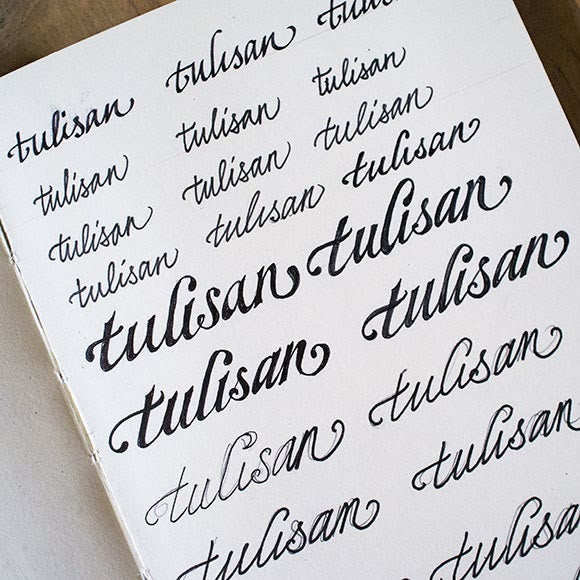 tulisan tulisan
tulisan tulisan tulisan
tulisan tulisan tulisan
tulisan tulisan tulisan
tulisan tulisan
tulisan tulisan
tulisan tulisan
tulisan tulisan
tulisan